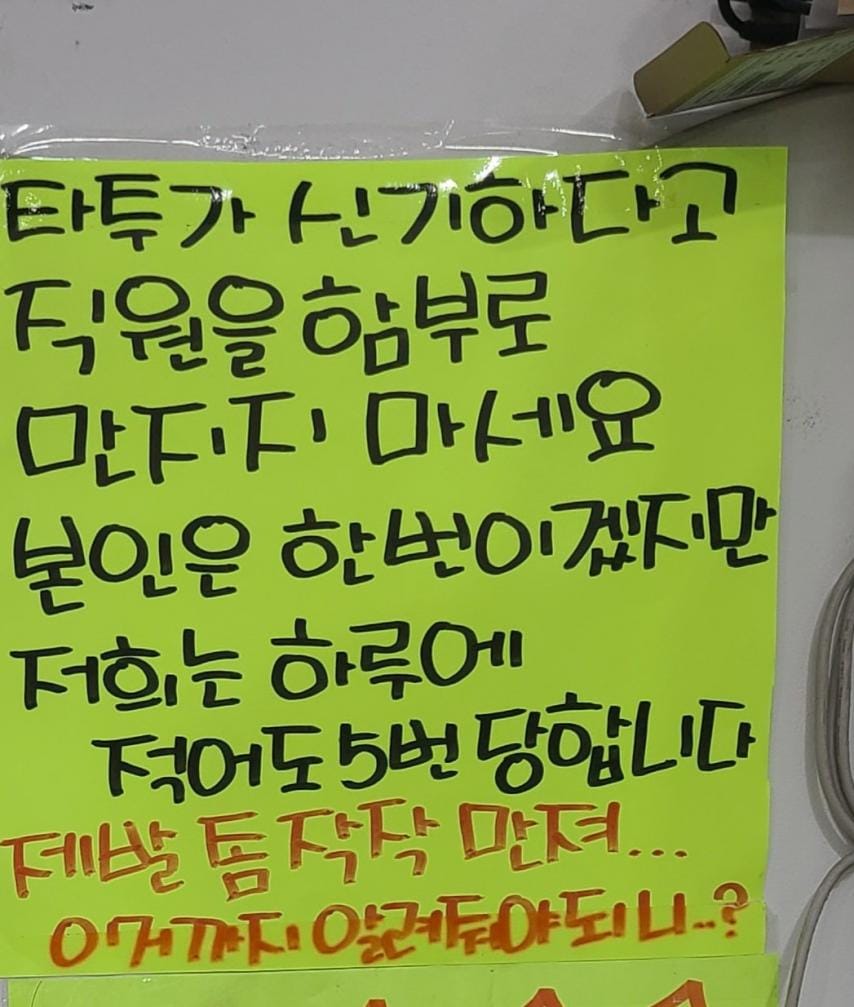 타투가 신기하다고
직원을 함부로
만지지 마세요
본인은 한번이겠지만
저희는 하루에
적어도 5번 당합니다
제발 톰 작작 만져...
이거까지 알려줘야되니..?